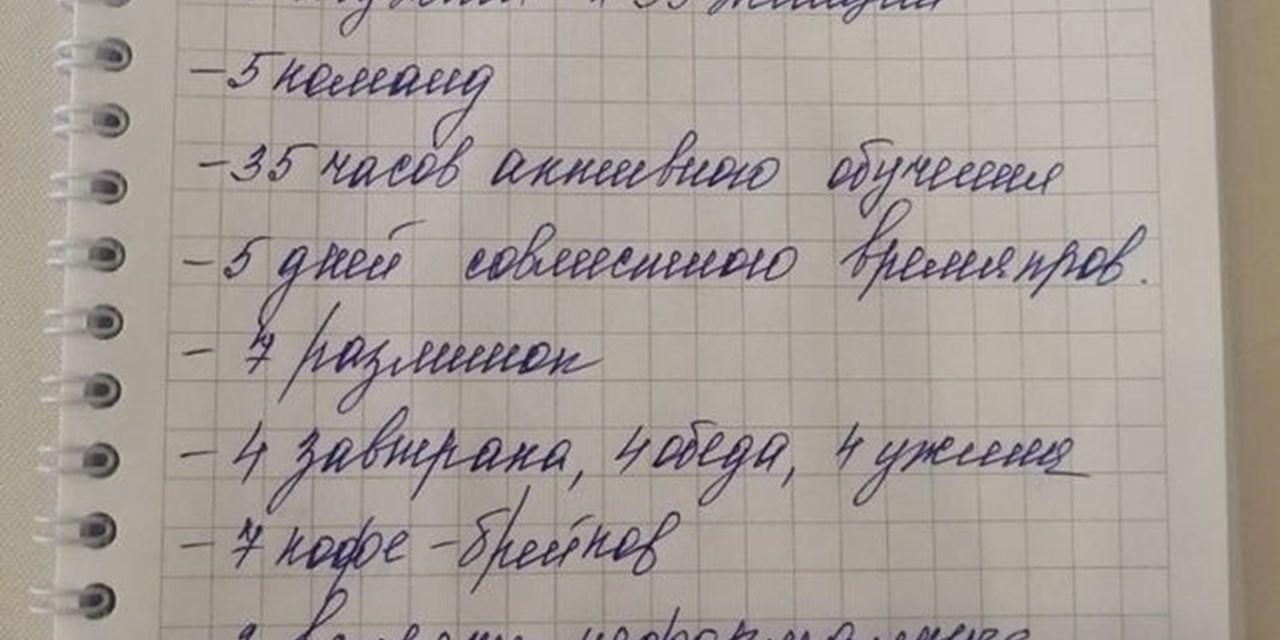 35 женщин
- 5 команд
- 35 часов активного обучения
- 5 дней совместного времяпров.
- 7 разминок
- 4 завтрака, 4 обеда, 4 ужина
- 7 кофе-брейков